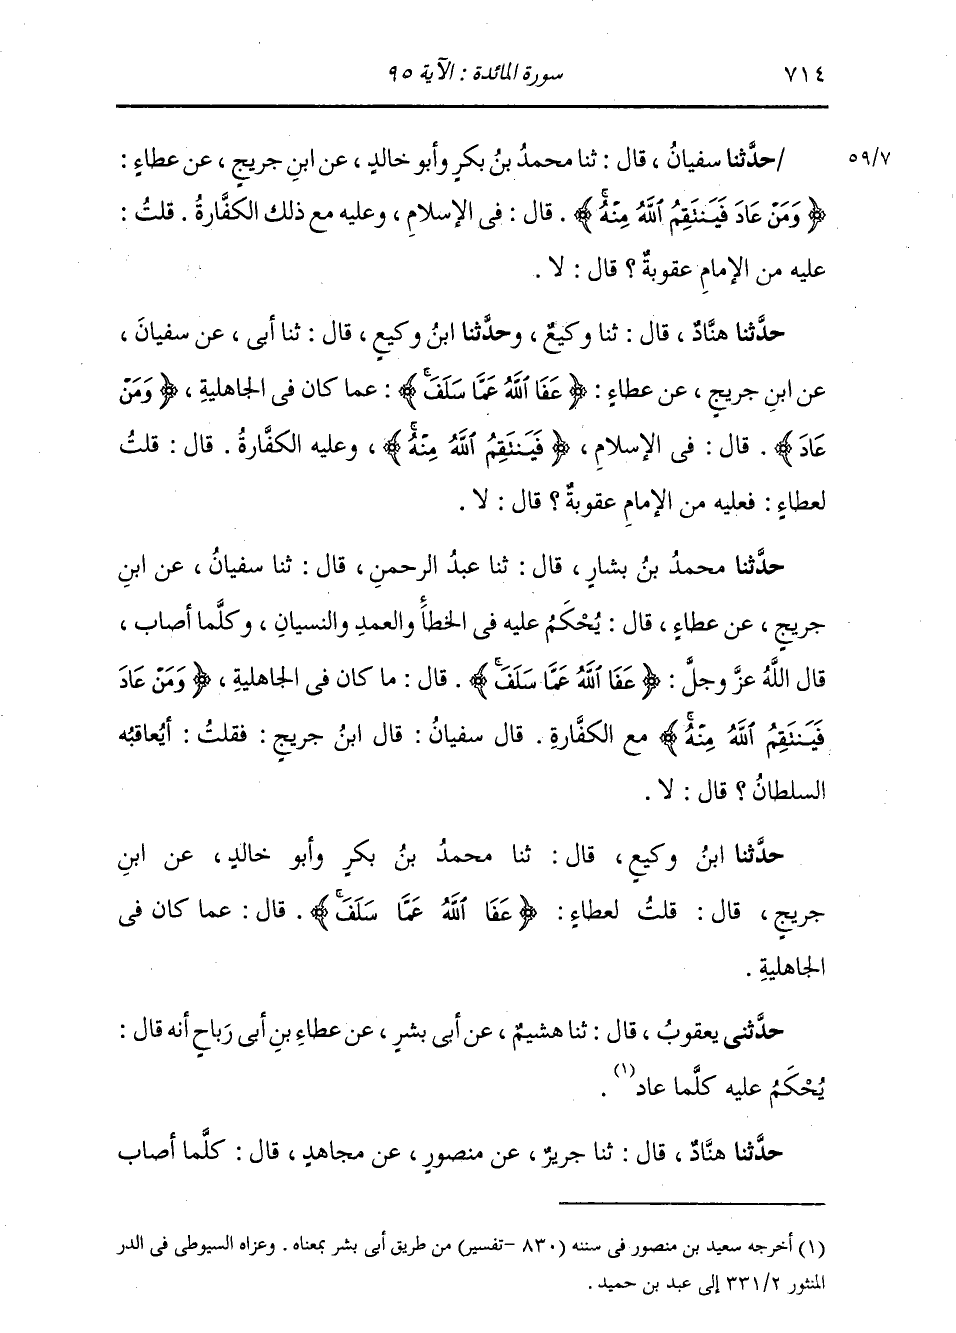 ٧١٤ سورة المائدة : الآية ٩٥
٥٩/٧ /حدَّثنا سفيانُ ، قال : ثنا محمدُ بنُ بكرٍ وأبو خالدٍ ، عن ابنِ جريجٍ ، عن عطاءٍ :
﴿ وَمَنْ عَادَ فَيَنتَقِمُ ٱللَّهُ مِنْهُۚ ﴾ . قال : فى الإسلامِ ، وعليه مع ذلك الكفَّارةُ . قلتُ :
عليه من الإمامِ عقوبةٌ ؟ قال : لا .
حدَّثنا هنَّادٌ ، قال : ثنا وكيعٌ ، وحدَّثنا ابنُ وكيعٍ ، قال : ثنا أبى ، عن سفيانَ ،
عن ابنِ جريجٍ ، عن عطاءٍ : ﴿ عَفَا ٱللَّهُ عَمَّا سَلَفَۚ ﴾ : عما كان فى الجاهليةِ ، ﴿ وَمَنْ
عَادَ ﴾ . قال : فى الإسلامِ ، ﴿ فَيَنتَقِمُ ٱللَّهُ مِنْهُۚ ﴾ ، وعليه الكفَّارةُ . قال : قلتُ
لعطاءٍ : فعليه من الإمامِ عقوبةٌ ؟ قال : لا .
حدَّثنا محمدُ بنُ بشارٍ ، قال : ثنا عبدُ الرحمنِ ، قال : ثنا سفيانُ ، عن ابنِ
جريجٍ ، عن عطاءٍ ، قال : يُحْكَمُ عليه فى الخطأِ والعمدِ والنسيانِ ، وكلَّما أصاب ،
قال اللَّهُ عزَّ وجلَّ : ﴿ عَفَا ٱللَّهُ عَمَّا سَلَفَۚ ﴾ . قال : ما كان فى الجاهليةِ ، ﴿ وَمَنْ عَادَ
فَيَنتَقِمُ ٱللَّهُ مِنْهُۚ ﴾ مع الكفَّارةِ . قال سفيانُ : قال ابنُ جريجٍ : فقلتُ : أيُعاقبُه
السلطانُ ؟ قال : لا .
حدَّثنا ابنُ وكيعٍ ، قال : ثنا محمدُ بنُ بكرٍ وأبو خالدٍ ، عن ابنِ
جريجٍ ، قال : قلتُ لعطاءٍ : ﴿ عَفَا ٱللَّهُ عَمَّا سَلَفَۚ ﴾ . قال : عما كان فى
الجاهليةِ .
حدَّثنى يعقوبُ ، قال : ثنا هشيمٌ ، عن أبى بشرٍ ، عن عطاءِ بنِ أبى رَباحٍ أنه قال :
يُحْكَمُ عليه كلَّما عاد(١) .
حدَّثنا هنَّادٌ ، قال : ثنا جريرٌ ، عن منصورٍ ، عن مجاهدٍ ، قال : كلَّما أصاب
(١) أخرجه سعيد بن منصور فى سننه (٨٣٠ -تفسير) من طريق أبى بشر بمعناه . وعزاه السيوطى فى الدر
المنثور ٣٣١/٢ إلى عبد بن حميد .